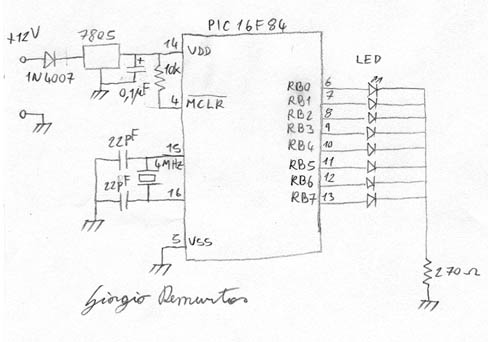 PIC 16F84
+12V
7805
14
VDD
LED
1N4007
+
10k
0,1µF
4
MCLR
RB0 6
RB1 7
RB2 8
RB3 9
RB4 10
RB5 11
RB6 12
RB7 13
22pF
15
4MHz
22pF
16
5
VSS
270Ω
Giorgio